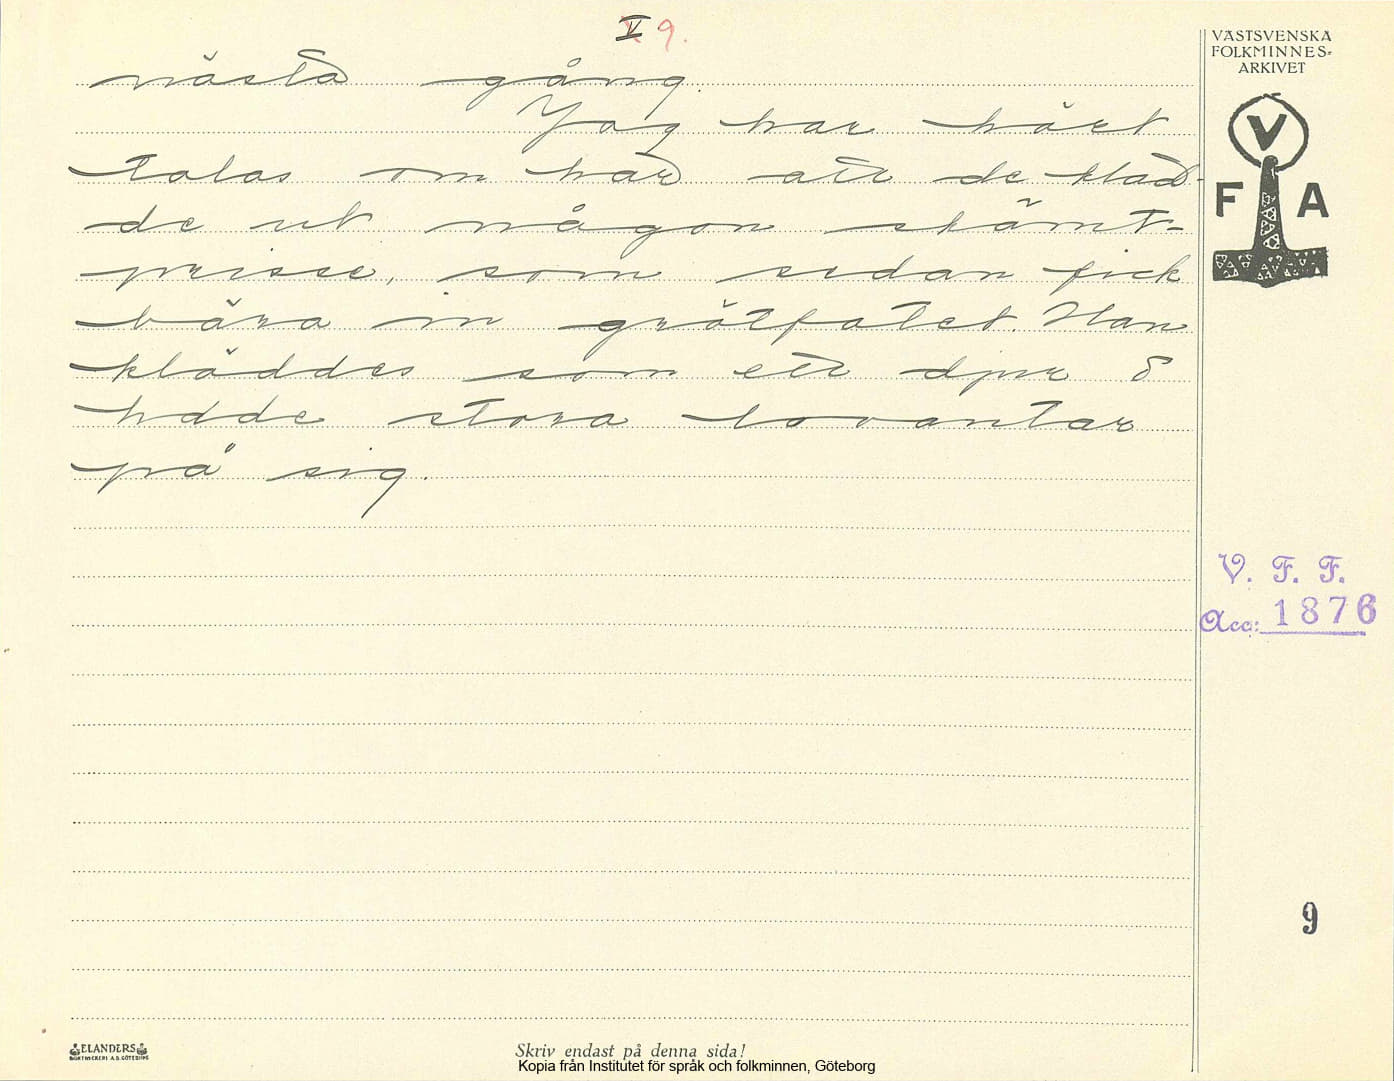 V 9.
nästa gång.
Jag har hört
talas om har att de kläd-
de ut någon skämt-
prisse, som sedan fick
bära in grötfatet. Han
kläddes som ett djur &
hdde stora lovantar
på sig.
VÄSTSVENSKA
FOLKMINNES-
ARKIVET
V
F A
V. F. F.
Acc: 1876
9
ELANDERS
BOKTRYCKERI A.B. GÖTEBORG
Skriv endast på denna sida!
Kopia från Institutet för språk och folkminnen, Göteborg